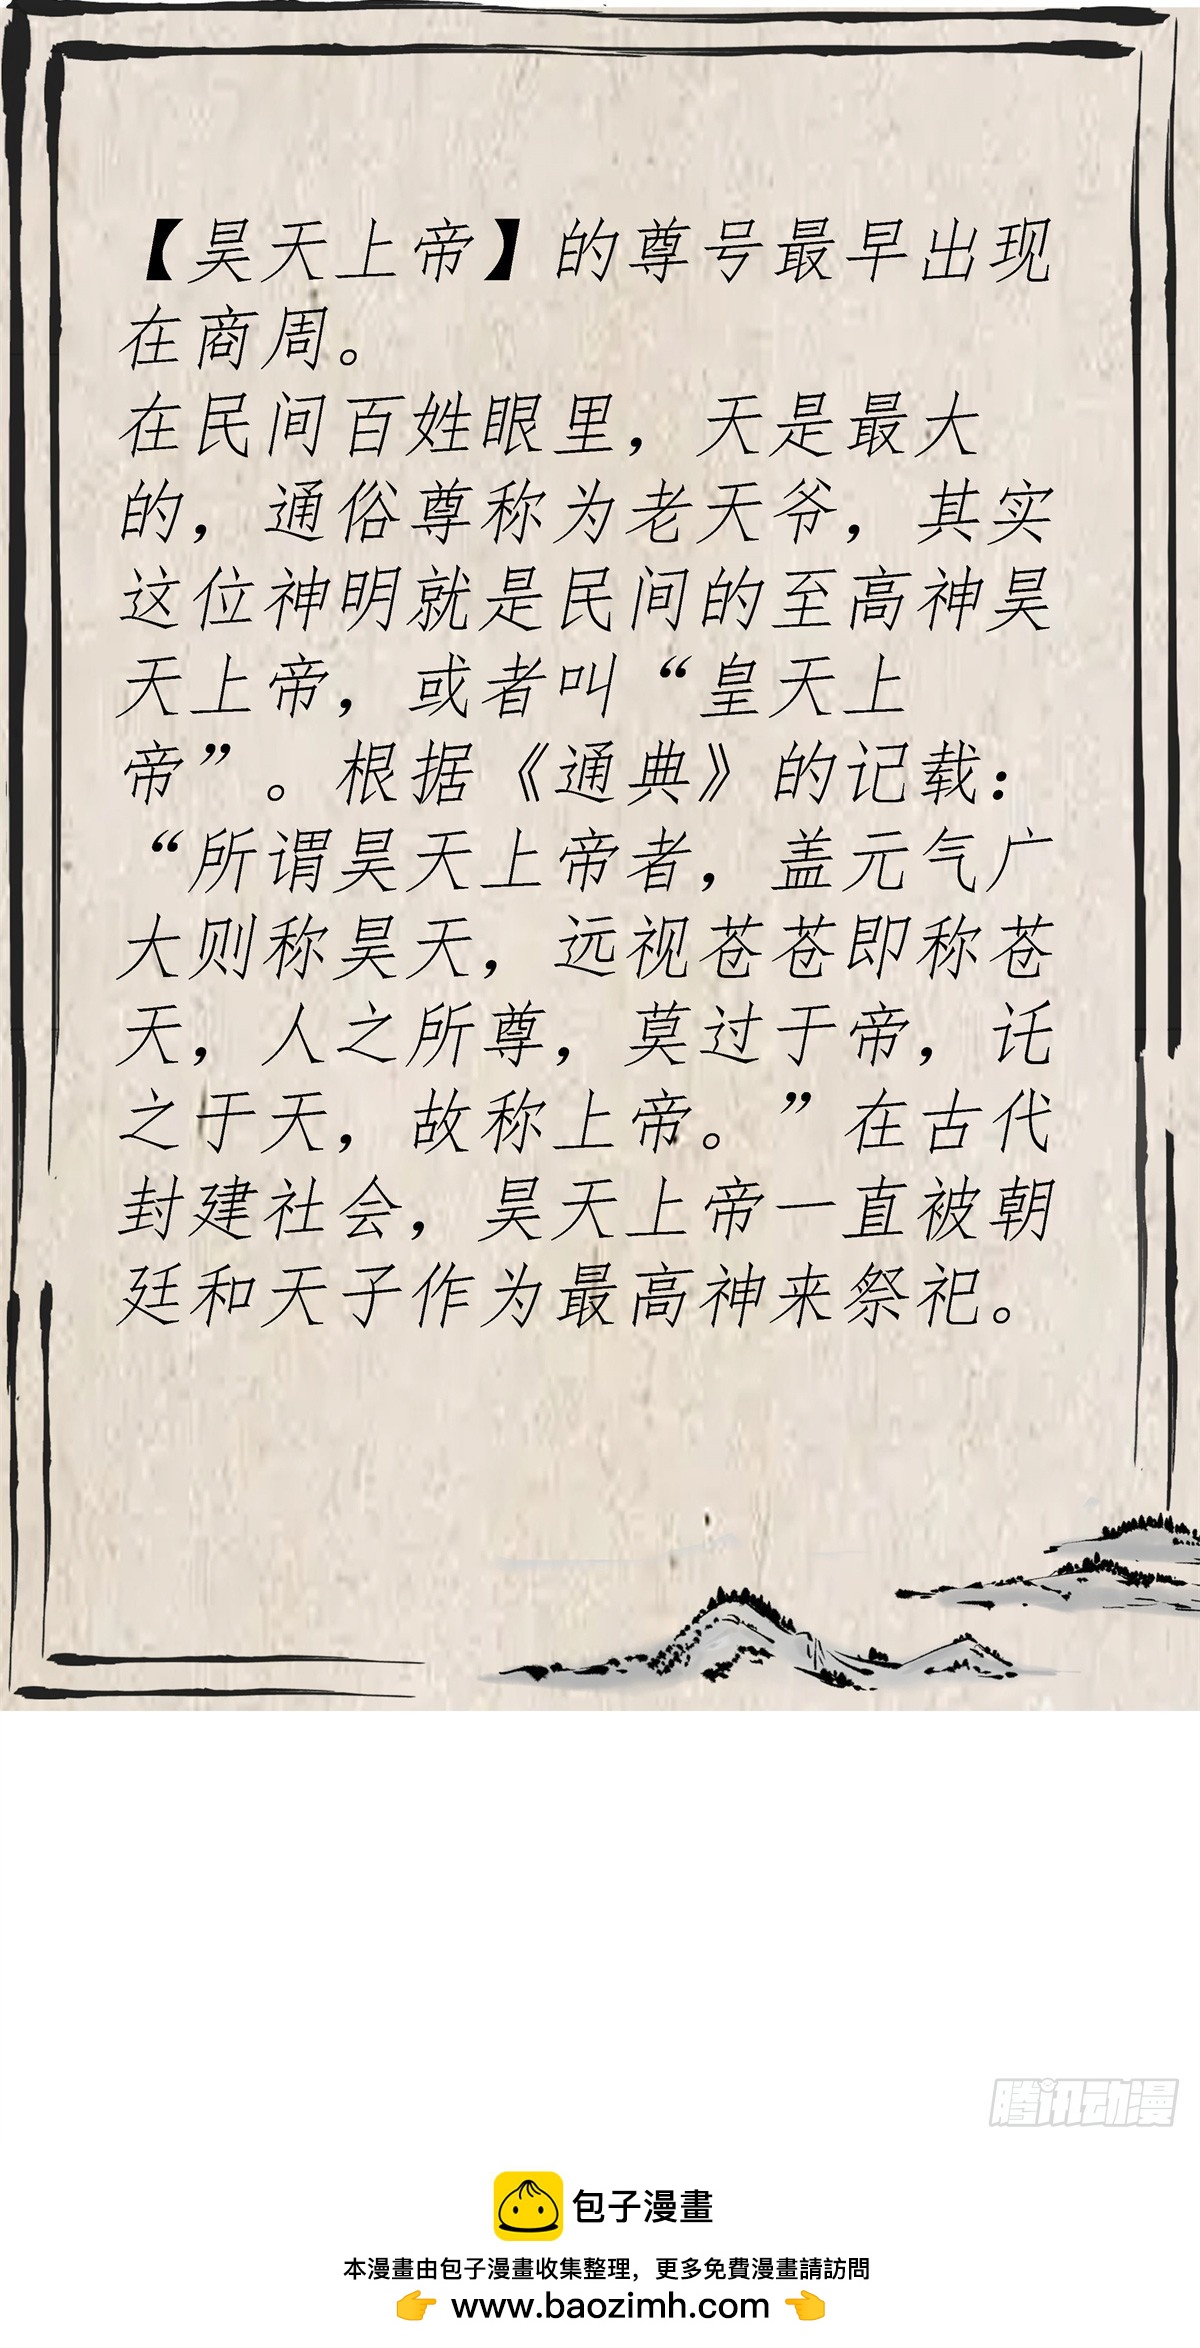 【昊天上帝】的尊号最早出现
在商周。
在民间百姓眼里，天是最大
的，通俗尊称为老天爷，其实
这位神明就是民间的至高神昊
天上帝，或者叫“皇天上
帝”。根据《通典》的记载：
“所谓昊天上帝者，盖元气广
大则称昊天，远视苍苍即称苍
天，人之所尊，莫过于帝，讬
之于天，故称上帝。”在古代
封建社会，昊天上帝一直被朝
廷和天子作为最高神来祭祀。
腾讯动漫
包子漫畫
本漫畫由包子漫畫收集整理，更多免費漫畫請訪問
👉 www.baozimh.com 👈